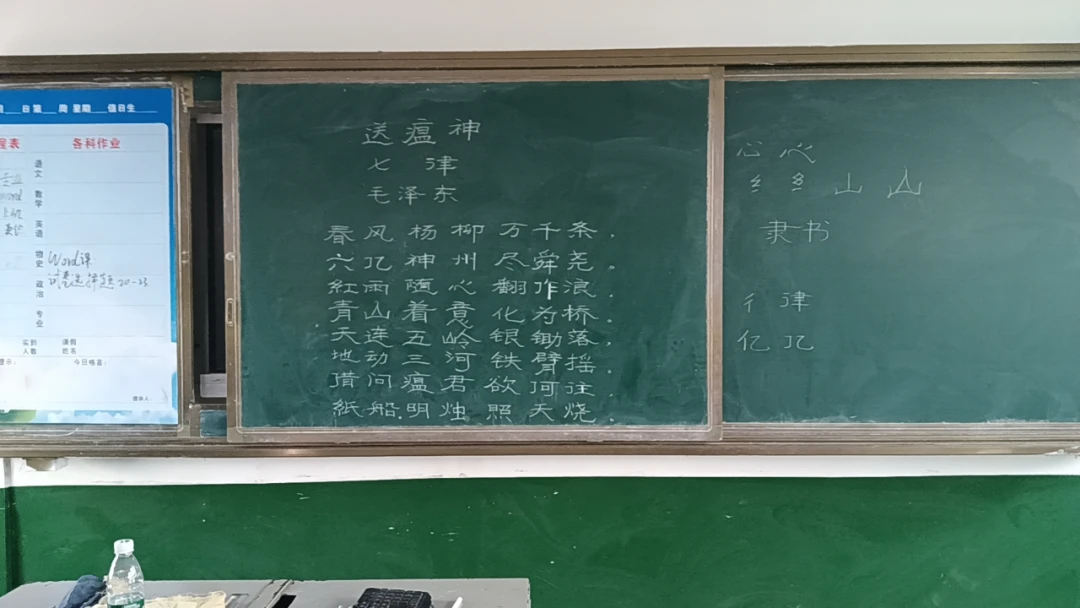 日 第 周 星期 值日生
程表 各科作业
语文
数学
英语
物史 Word课
政治 试卷选择题20-25
专业
实到人数 请假姓名
提示: 今日格言:
值日人:
送瘟神
七律
毛泽东
春风杨柳万千条,
六亿神州尽舜尧。
红雨随心翻作浪,
青山着意化为桥。
天连五岭银锄落,
地动三河铁臂摇。
借问瘟君欲何往,
纸船明烛照天烧。
心 心
纟 纟 山 山
隶书
彳 律
亿 亿